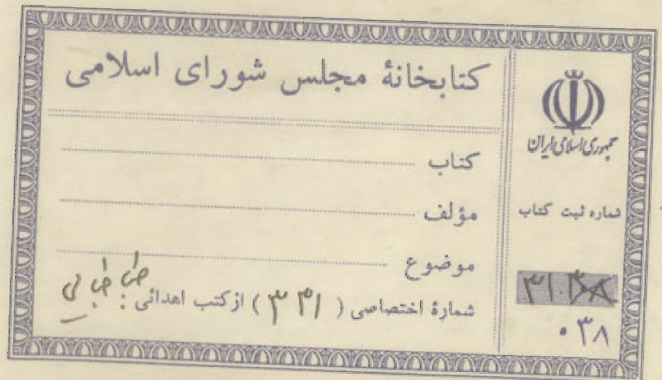 کتابخانهٔ مجلس شورای اسلامی
کتاب
مؤلف
موضوع
شمارهٔ اختصاصی ( ۳۳۱ ) از کتب اهدائی : طباطبائی
جمهوری اسلامی ایران
شماره ثبت کتاب
۰۳۸